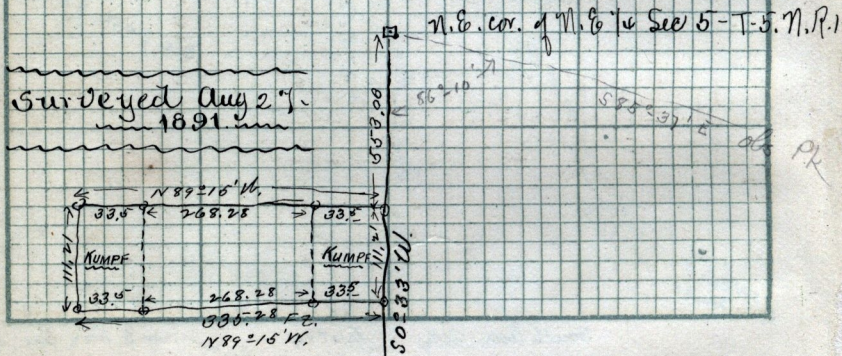 N.E. cor. of N.E ¼ Sec 5-T-5.N.R.1
Surveyed Aug 27.
1891.
553.08
86°-10'
S 85°-37' E
obs Pk
N 89°15' W.
33.5 268.28 33.5
111.21 KUMPF KUMPF 111.21
33.5 268.28 33.5
335.28 Ft.
N 89°15' W.
S0°33' W